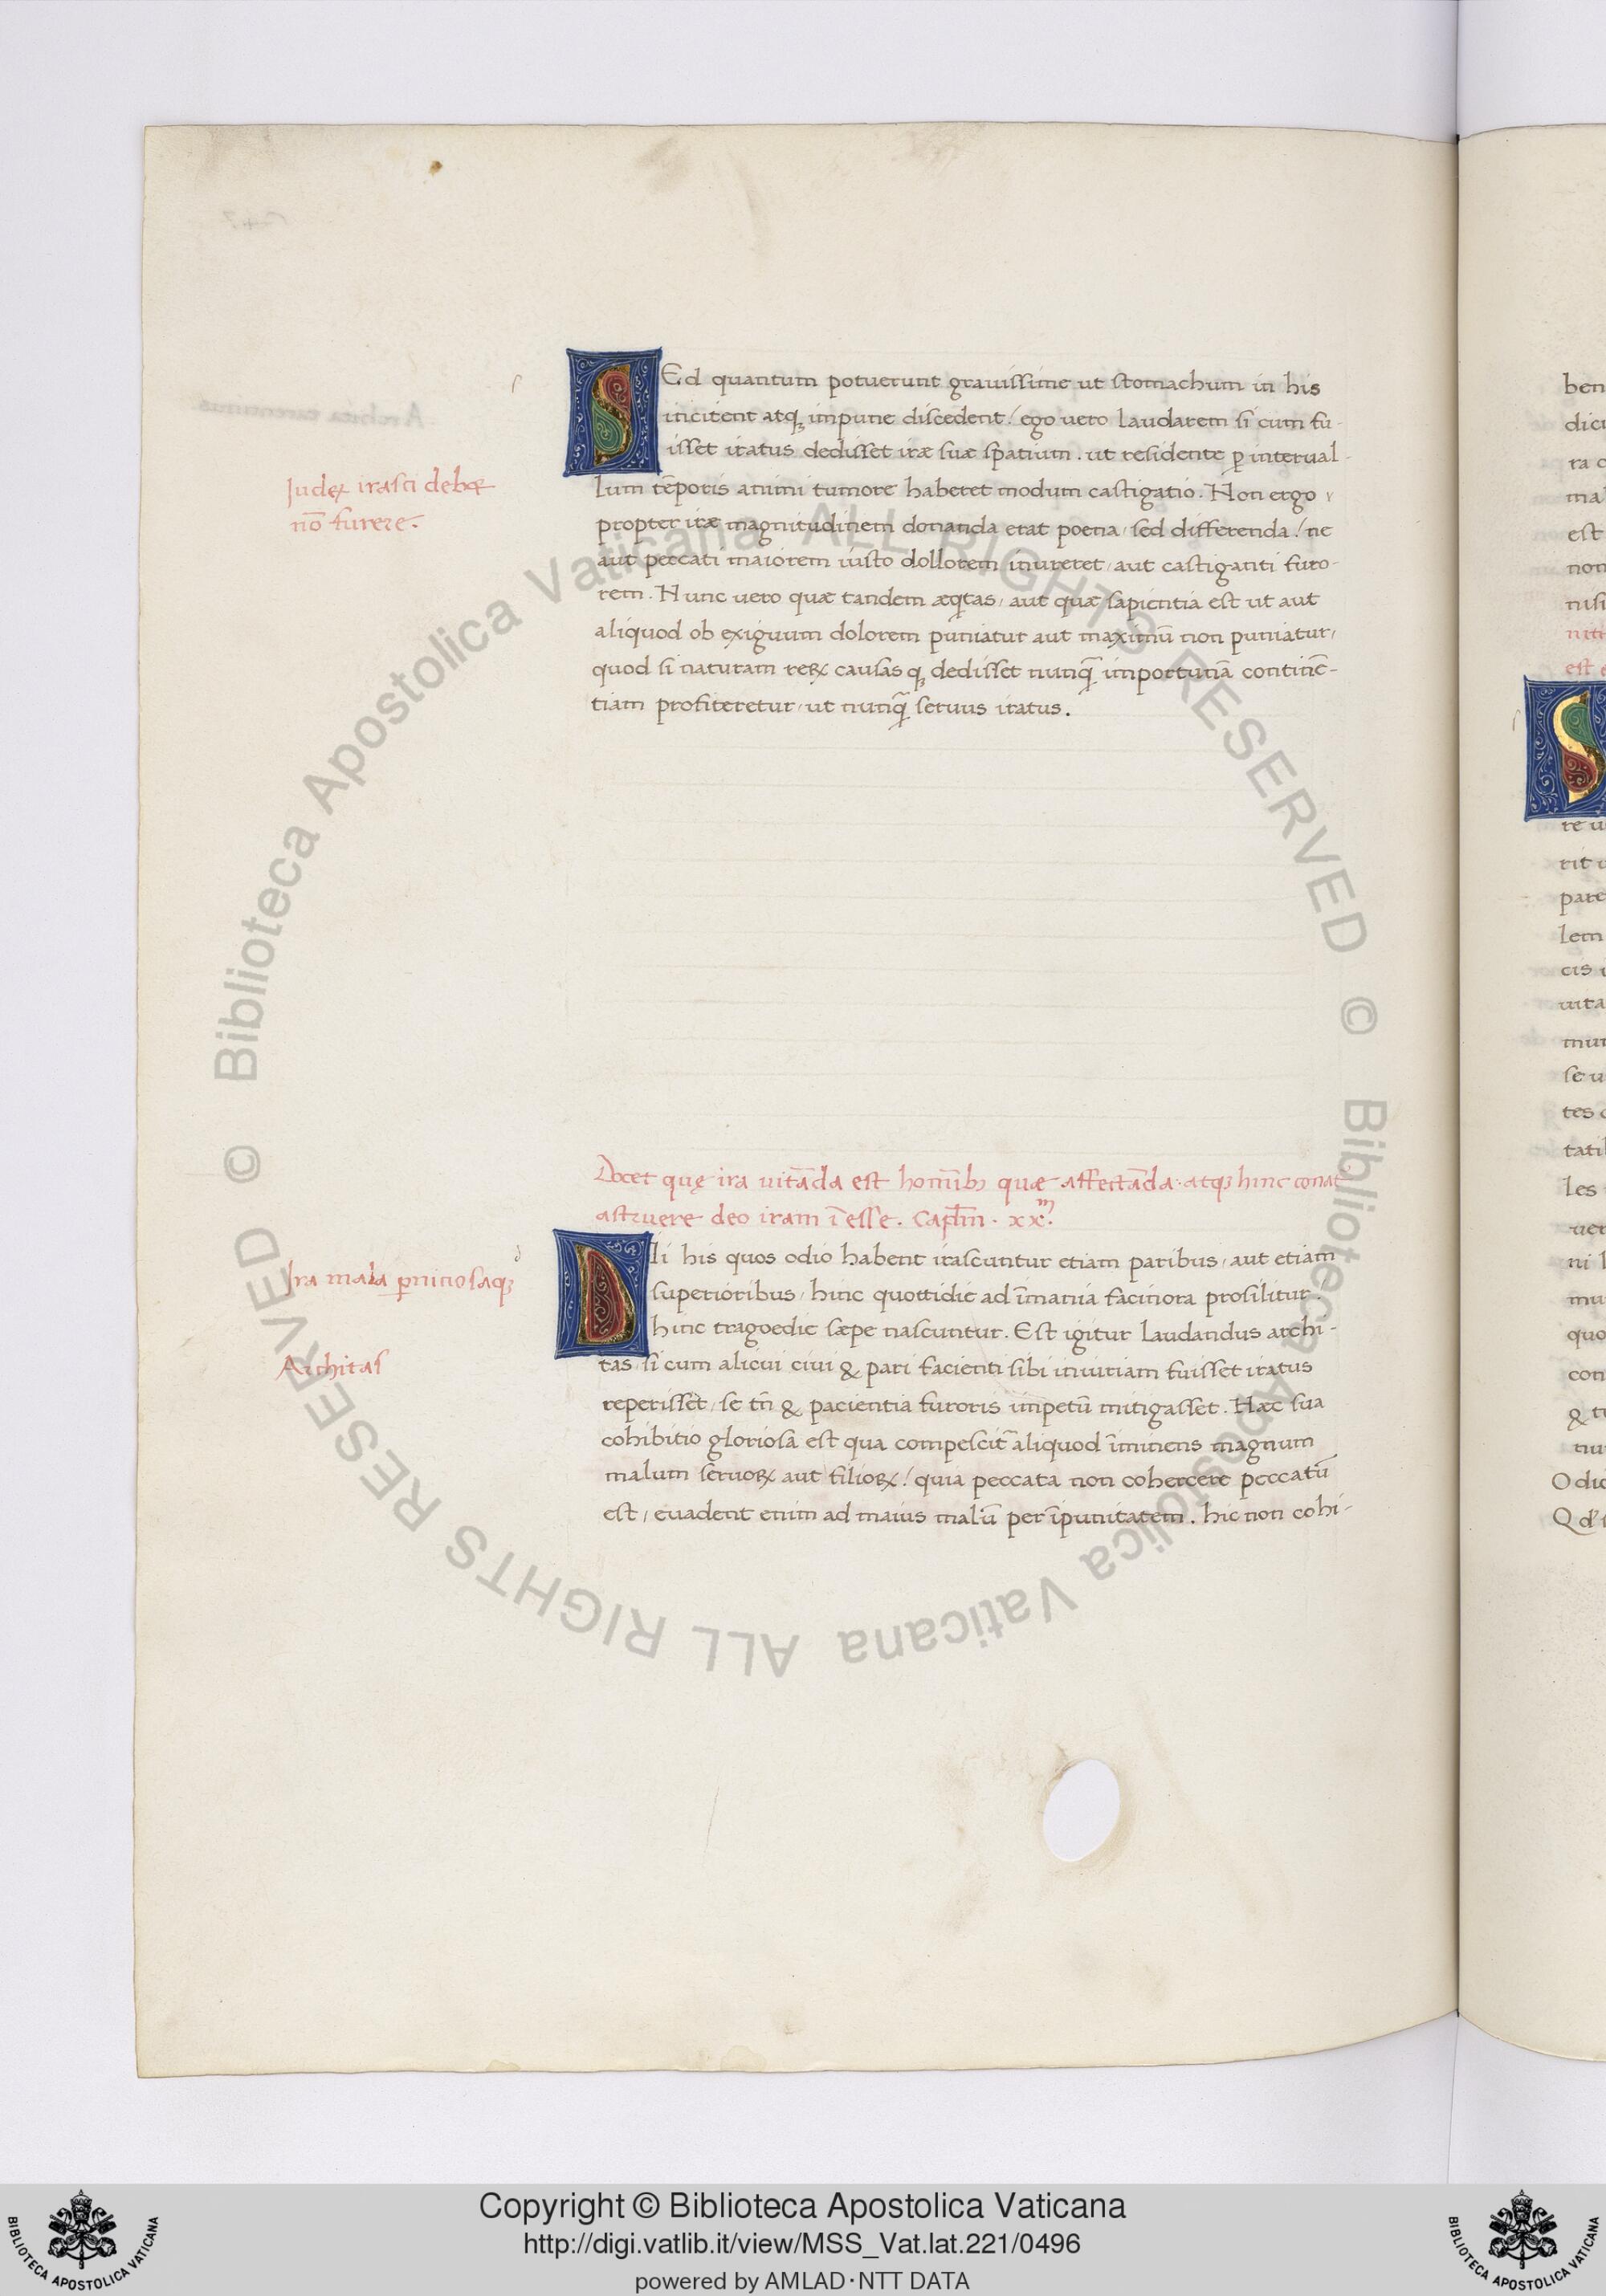 SEd quantum potuerunt grauissime ut stomachum in his
incitent atqꝫ impune discedent / ego uero laudarem si cum fu-
isset iratus dedisset iræ suæ spatium . ut residente ꝑ interual-
lum tēporis animi tumore haberet modum castigatio . Non ergo
propter iræ magnitudinem donanda erat poena / sed differenda / ne
aut peccati maiorem iusto dollorem inureret / aut castiganti furo-
rem . Nunc uero quæ tandem æqtas / aut quæ sapientia est ut aut
aliquod ob exiguum dolorem puniatur aut maximū non puniatur /
quod si naturam reꝝ causas qꝫ dedisset nunq̄ importunā continē-
tiam profiteretur / ut nunq̄ seruus iratus .
Iudex irasci debet
nō furere .
Docet quę ira uitāda est homībꝫ quæ affectāda . atqꝫ hinc conat
astruere deo iram ī esse . Capłm . xx.m
DIi his quos odio habent irascuntur etiam paribus / aut etiam
superioribus / hinc quottidie ad īmania facinora prosilitur .
hinc tragoedie sæpe nascuntur . Est igitur laudandus archi-
tas / si cum alicui ciui & pari facienti sibi iniuriam fuisset iratus
reperisset / se tn̄ & pacientia furoris impetū mitigasset . Hæc sua
cohibitio gloriosa est qua compescit aliquod īminens magnum
malum seruoꝝ aut filioꝝ / quia peccata non cohercere peccatū
est / euadent enim ad maius malū per īpunitatem . hic non cohi-
Ira mala ꝑniciosaqꝫ
Architas
ben
est
non
nisi
pare
lem
cis
uita
mur
se u
tes
tati
les
uer
ni
mu
quo
con
& t
nu
Odio
© Biblioteca Apostolica Vaticana ALL RIGHTS RESERVED
© Biblioteca Apostolica Vaticana ALL RIGHTS RESERVED
Copyright © Biblioteca Apostolica Vaticana
http://digi.vatlib.it/view/MSS_Vat.lat.221/0496
powered by AMLAD·NTT DATA
BIBLIOTECA APOSTOLICA VATICANA
BIBLIOTECA APOSTOLICA VATICANA